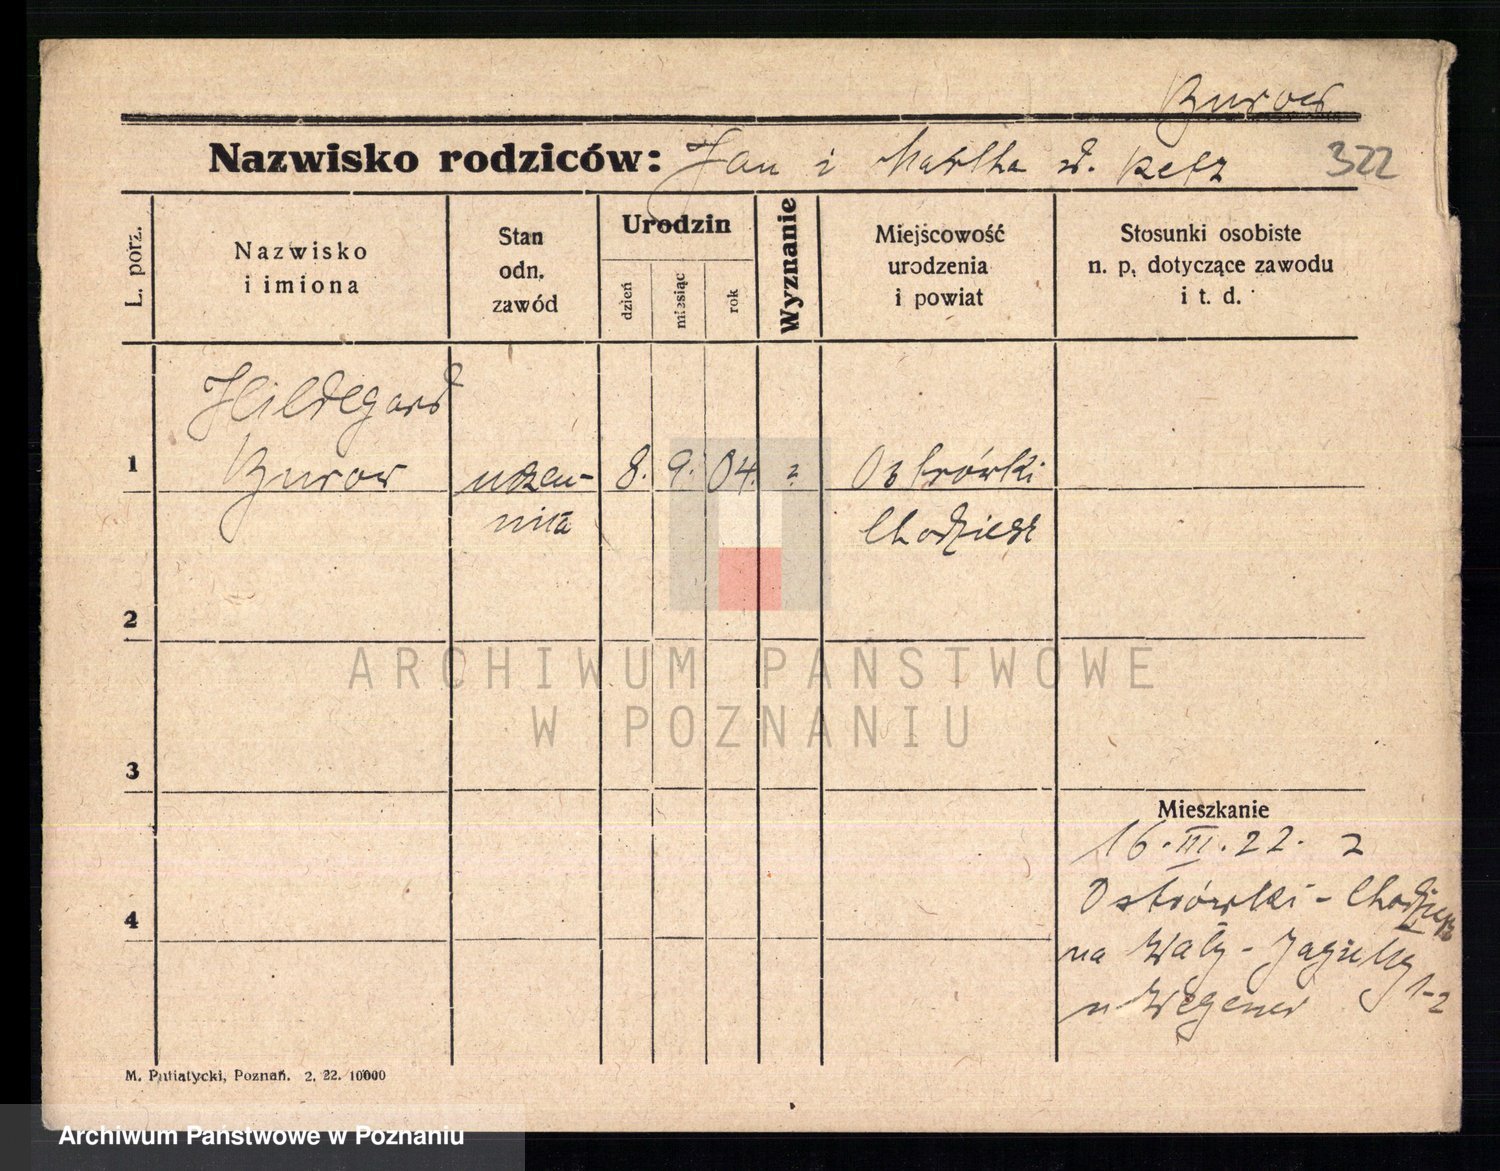 Burow
Nazwisko rodziców: Jan i Martha d. Retz 322
L. porz.
Nazwisko
i imiona
Stan
odn.
zawód
Urodzin
dzień
miesiąc
rok
Wyznanie
Miejscowość
urodzenia
i powiat
Stosunki osobiste
n. p. dotyczące zawodu
i t. d.
Hildegard
1 Burow uczen- 8. 9. 04. Ostrówki
nica Chodzież
2
3
4
Mieszkanie
16. III. 22. z
Ostrówki - Chodzież
na Wały - Jagiełły
u Wegener 1-2
M. Putiatycki, Poznań. 2. 22. 10000
ARCHIWUM PAŃSTWOWE
W POZNANIU
Archiwum Państwowe w Poznaniu